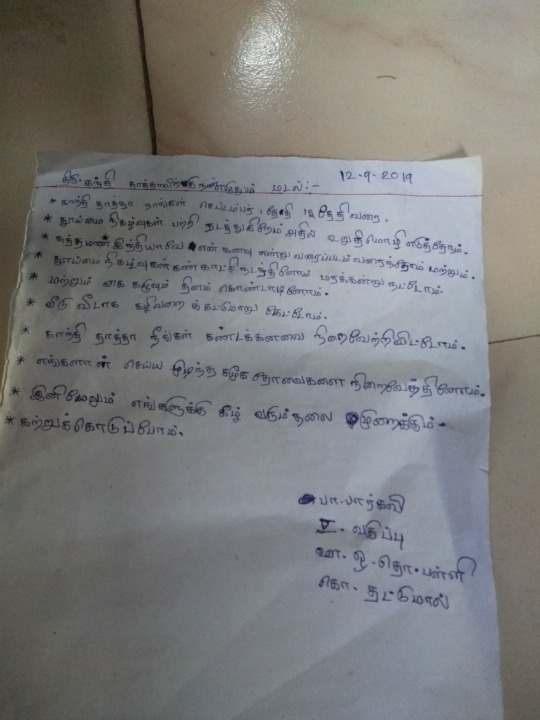 திரு.காந்தி தாத்தாவிற்கு நான் எழுதும் மடல்:- 12.9.2019
* காந்தி தாத்தா நாங்கள் செப்டம்பர் 1 தேதி 12 தேதி வரை.
* தூய்மை நிகழ்வுகள் பற்றி நடத்துகிறோம் அதில் உறுதிமொழி எடுத்தோம்.
* சுத்தமான இந்தியாவே என் கனவு என்று வரைப்படம் வரைந்தோம் மற்றும்.
* தூய்மை நிகழ்வுகள் கண்காட்சி நடத்தினோம் மரக்கன்று நட்டோம்.
* மற்றும் கை கழுவும் தினம் கொண்டாடினோம்.
* வீடு வீடாக கழிவறை கட்டுமாறு கேட்டோம்.
* காந்தி தாத்தா நீங்கள் கண்டக்கனவை நிறைவேற்றிவிட்டோம்.
* எங்களால் செய்ய முடிந்த தேவைகளை நிறைவேத்தினோம்.
* இனிமேலும் எங்களுக்கு கீழ் வரும் தலை முறைக்கும்.
* கற்றுக்கொடுப்போம்.
பா.பார்கவி
V. வகுப்பு
ஊ.ஒ.தொ.பள்ளி
கொ. தட்டுமால்